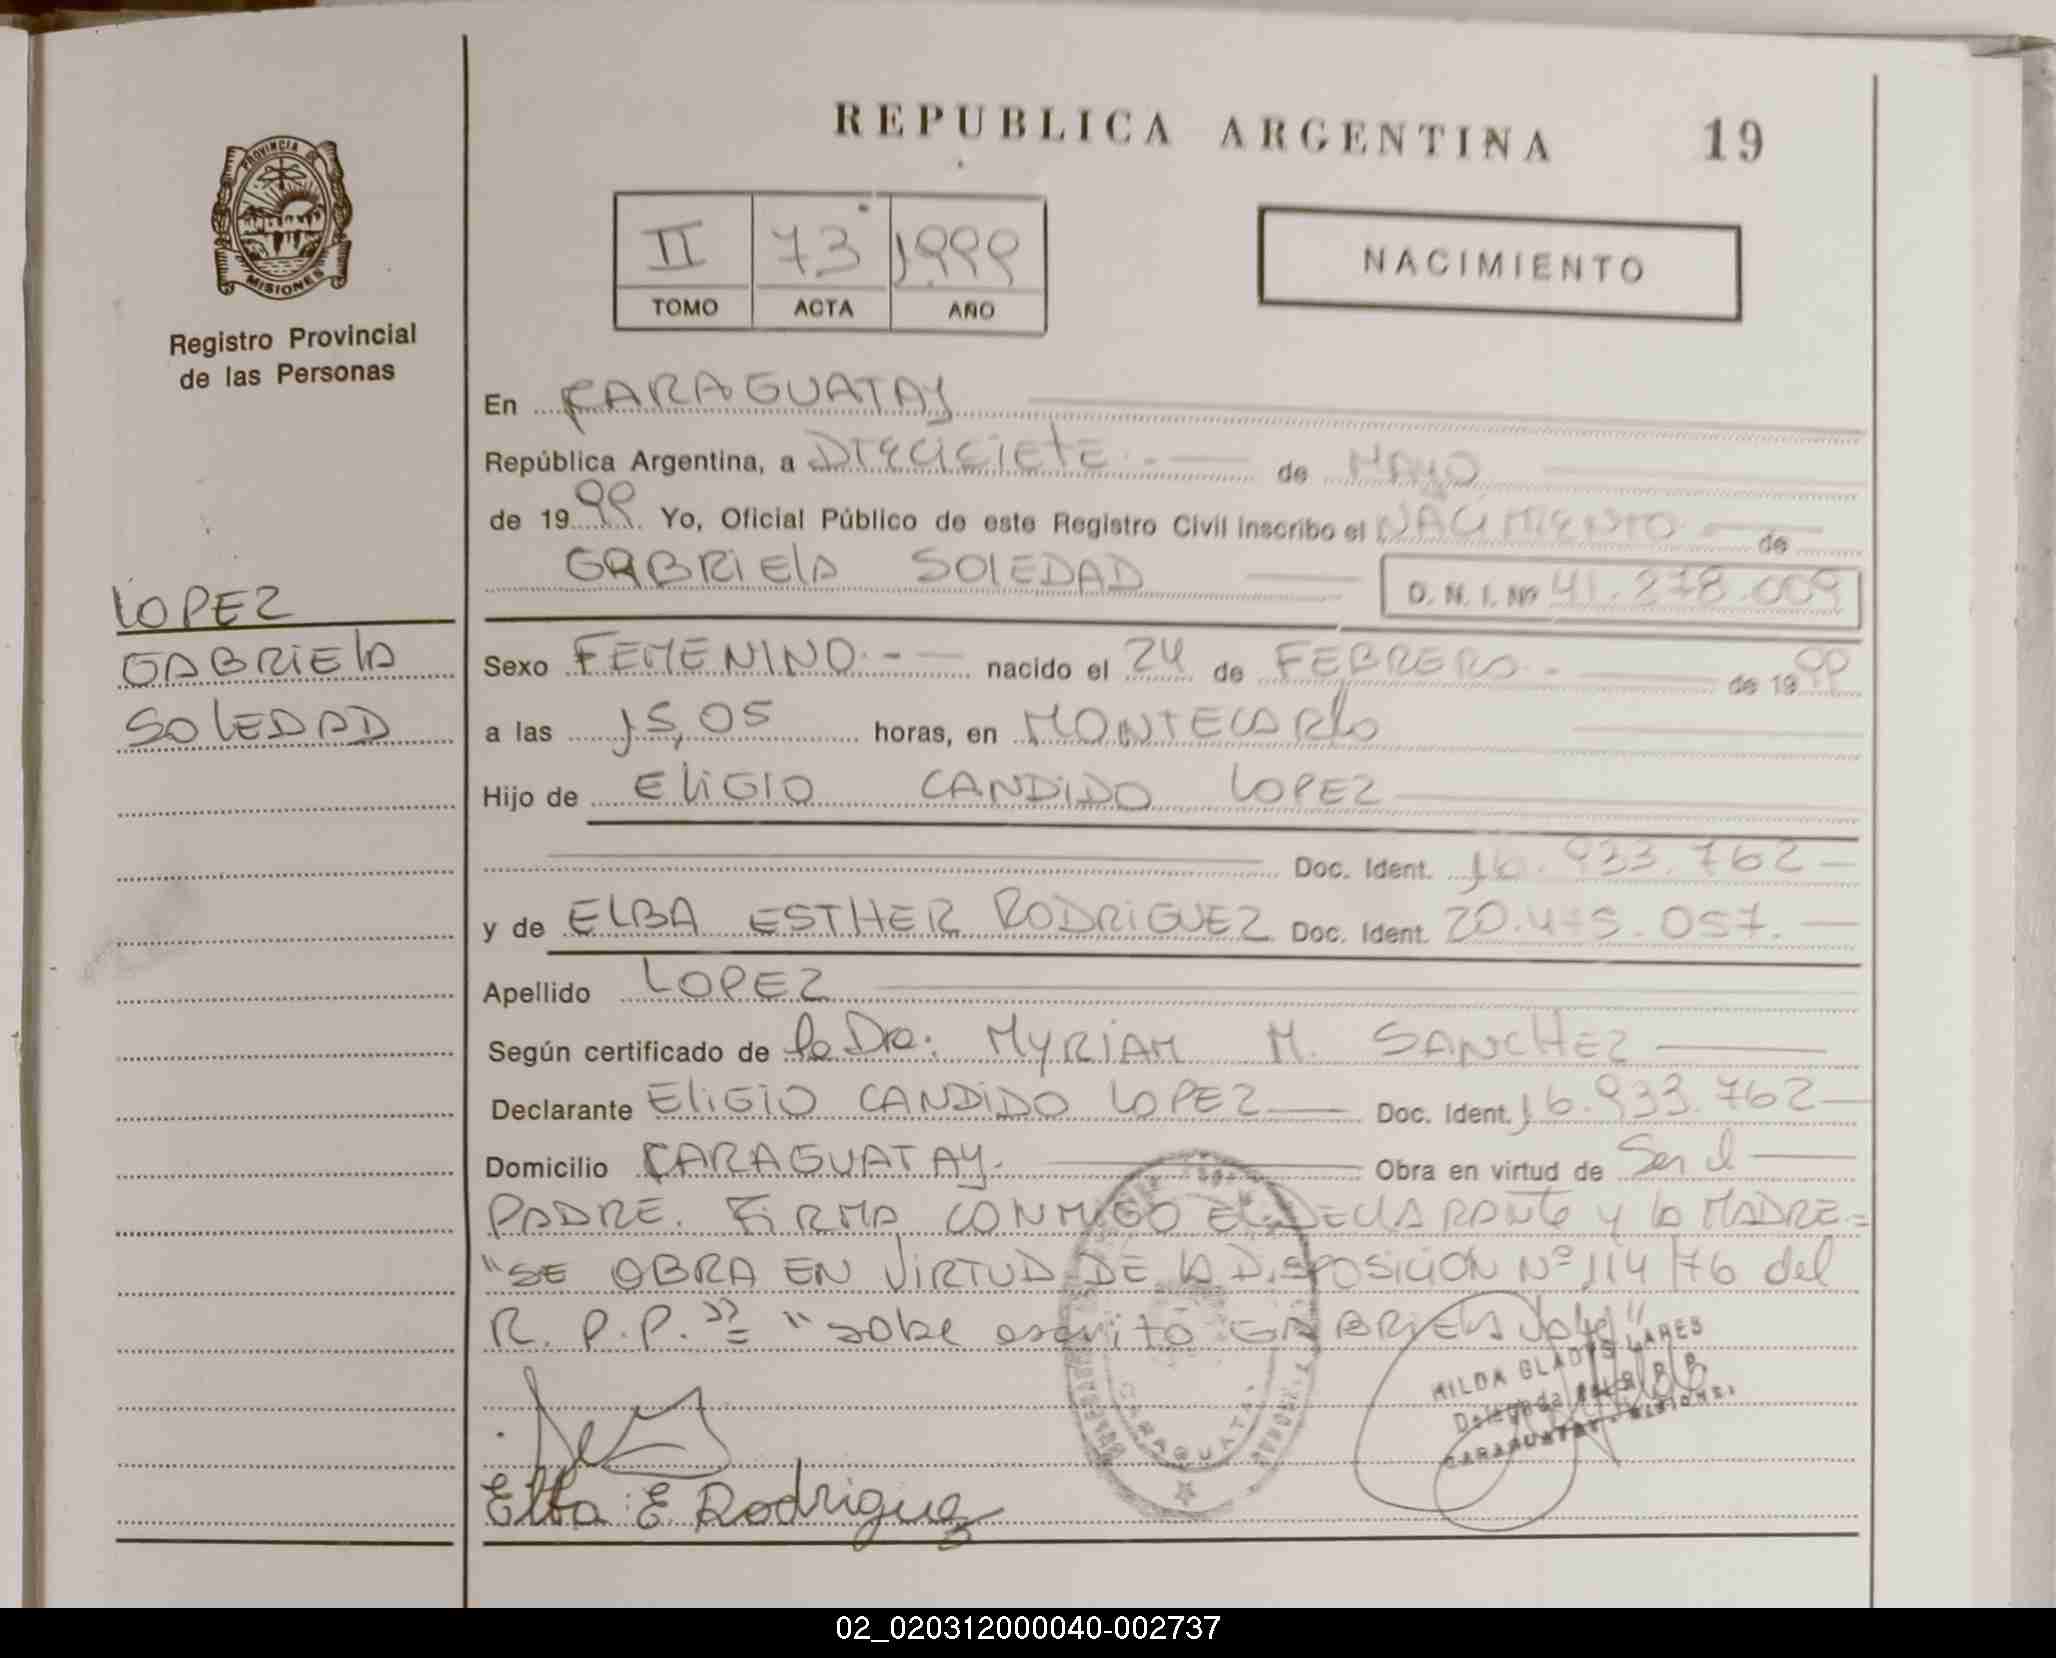 REPUBLICA ARGENTINA 19
PROVINCIA DE
MISIONES
Registro Provincial
de las Personas
II 73 1999
TOMO ACTA AÑO
NACIMIENTO
En CARAGUATAY
República Argentina, a DIECICIETE de MAYO
de 1999 Yo, Oficial Público de este Registro Civil inscribo el NACIMIENTO de
GABRIELA SOLEDAD D. N. I. Nº 41.278.009
LOPEZ
GABRIELA
SOLEDAD
Sexo FEMENINO nacido el 24 de FEBRERO de 1999
a las 15,05 horas, en MONTECARLO
Hijo de ELIGIO CANDIDO LOPEZ
Doc. Ident. 16.933.762
y de ELBA ESTHER RODRIGUEZ Doc. Ident. 20.475.057.
Apellido LOPEZ
Según certificado de la Dra: MYRIAM M. SANCHEZ
Declarante ELIGIO CANDIDO LOPEZ Doc. Ident. 16.933.762
Domicilio CARAGUATAY. Obra en virtud de Ser el
PADRE. FIRMA CONMIGO EL DECLARANTE y la MADRE=
"SE OBRA EN VIRTUD DE LA DISPOSICION Nº 114/76 del
R. P. P."= "sobre escrito GABRIELA
HILDA GLADYS LARES
Delegada R. P. P.
CARAGUATAY - MISIONES
CARAGUATAY
Elba E Rodriguez
02_020312000040-002737